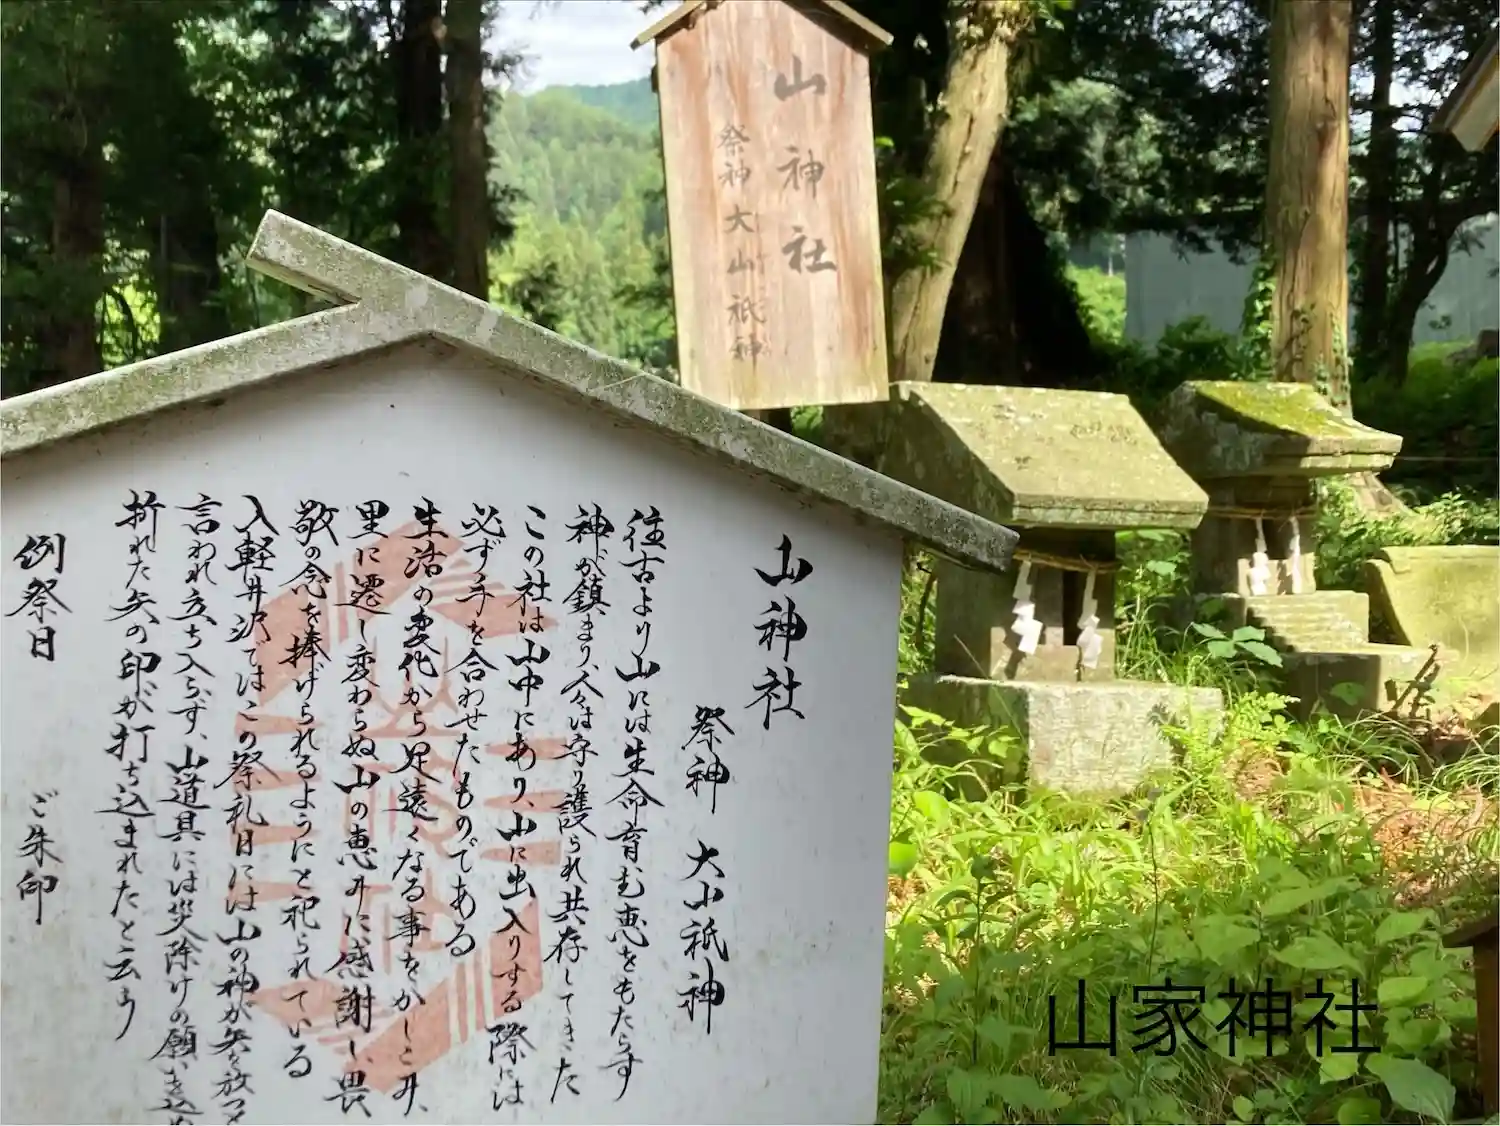 山神社
祭神 大山祇神
山神社
祭神 大山祇神
往古より山には生命育む恵をもたらす
神が鎮まり、人々は守り護られ共存してきた
この社は山中にあり、山に出入りする際には
必ず手を合わせたものである
生活の変化から足遠くなる事をかしこみ、
里に遷し変わらぬ山の恵みに感謝し、畏
敬の念を捧げられるようにと祀られている
入軽井沢ではこの祭礼日には山の神が矢を放つと
言われ立ち入らず、山道具には災除けの願いを込め
折れた矢の印が打ち込まれたと云う
例祭日 ご朱印
山家神社